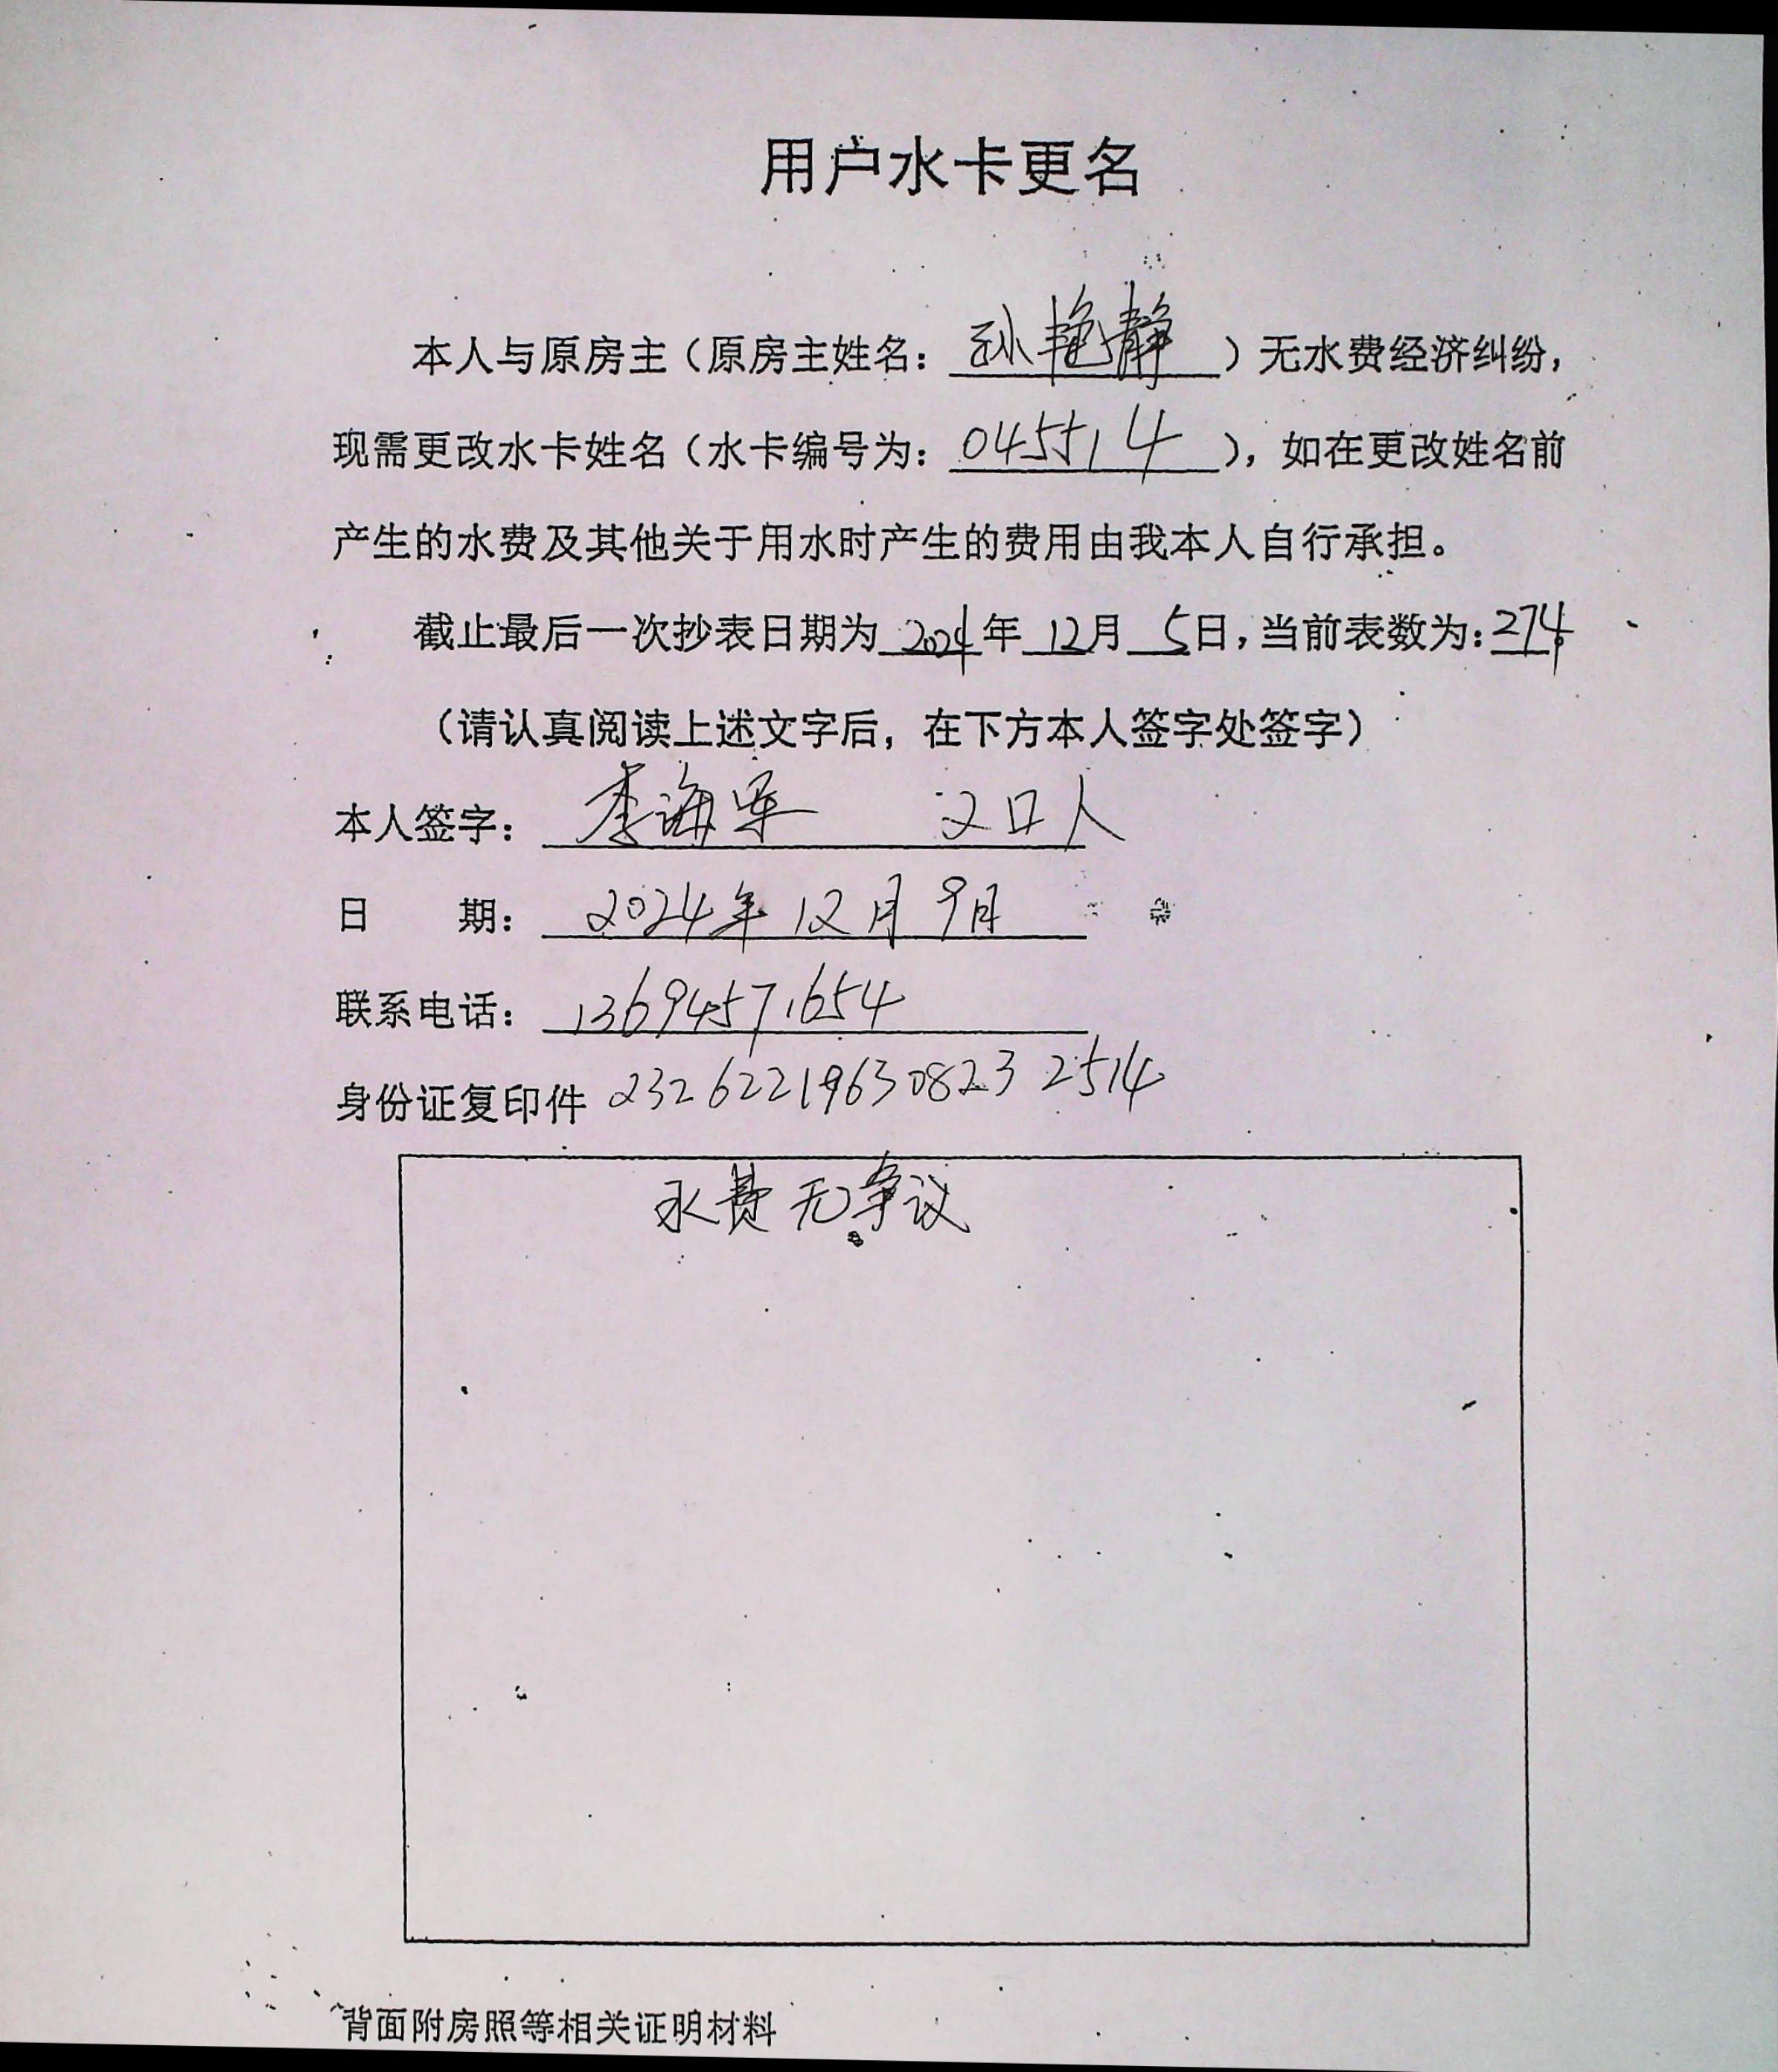 用户水卡更名
本人与原房主（原房主姓名：孙艳静）无水费经济纠纷，
现需更改水卡姓名（水卡编号为：045514），如在更改姓名前
产生的水费及其他关于用水时产生的费用由我本人自行承担。
截止最后一次抄表日期为2024年12月5日，当前表数为：274。
（请认真阅读上述文字后，在下方本人签字处签字）
本人签字：李海军 2口人
日 期：2024年12月9日
联系电话：13694571654
身份证复印件 232622196308232514
水费无争议
背面附房照等相关证明材料